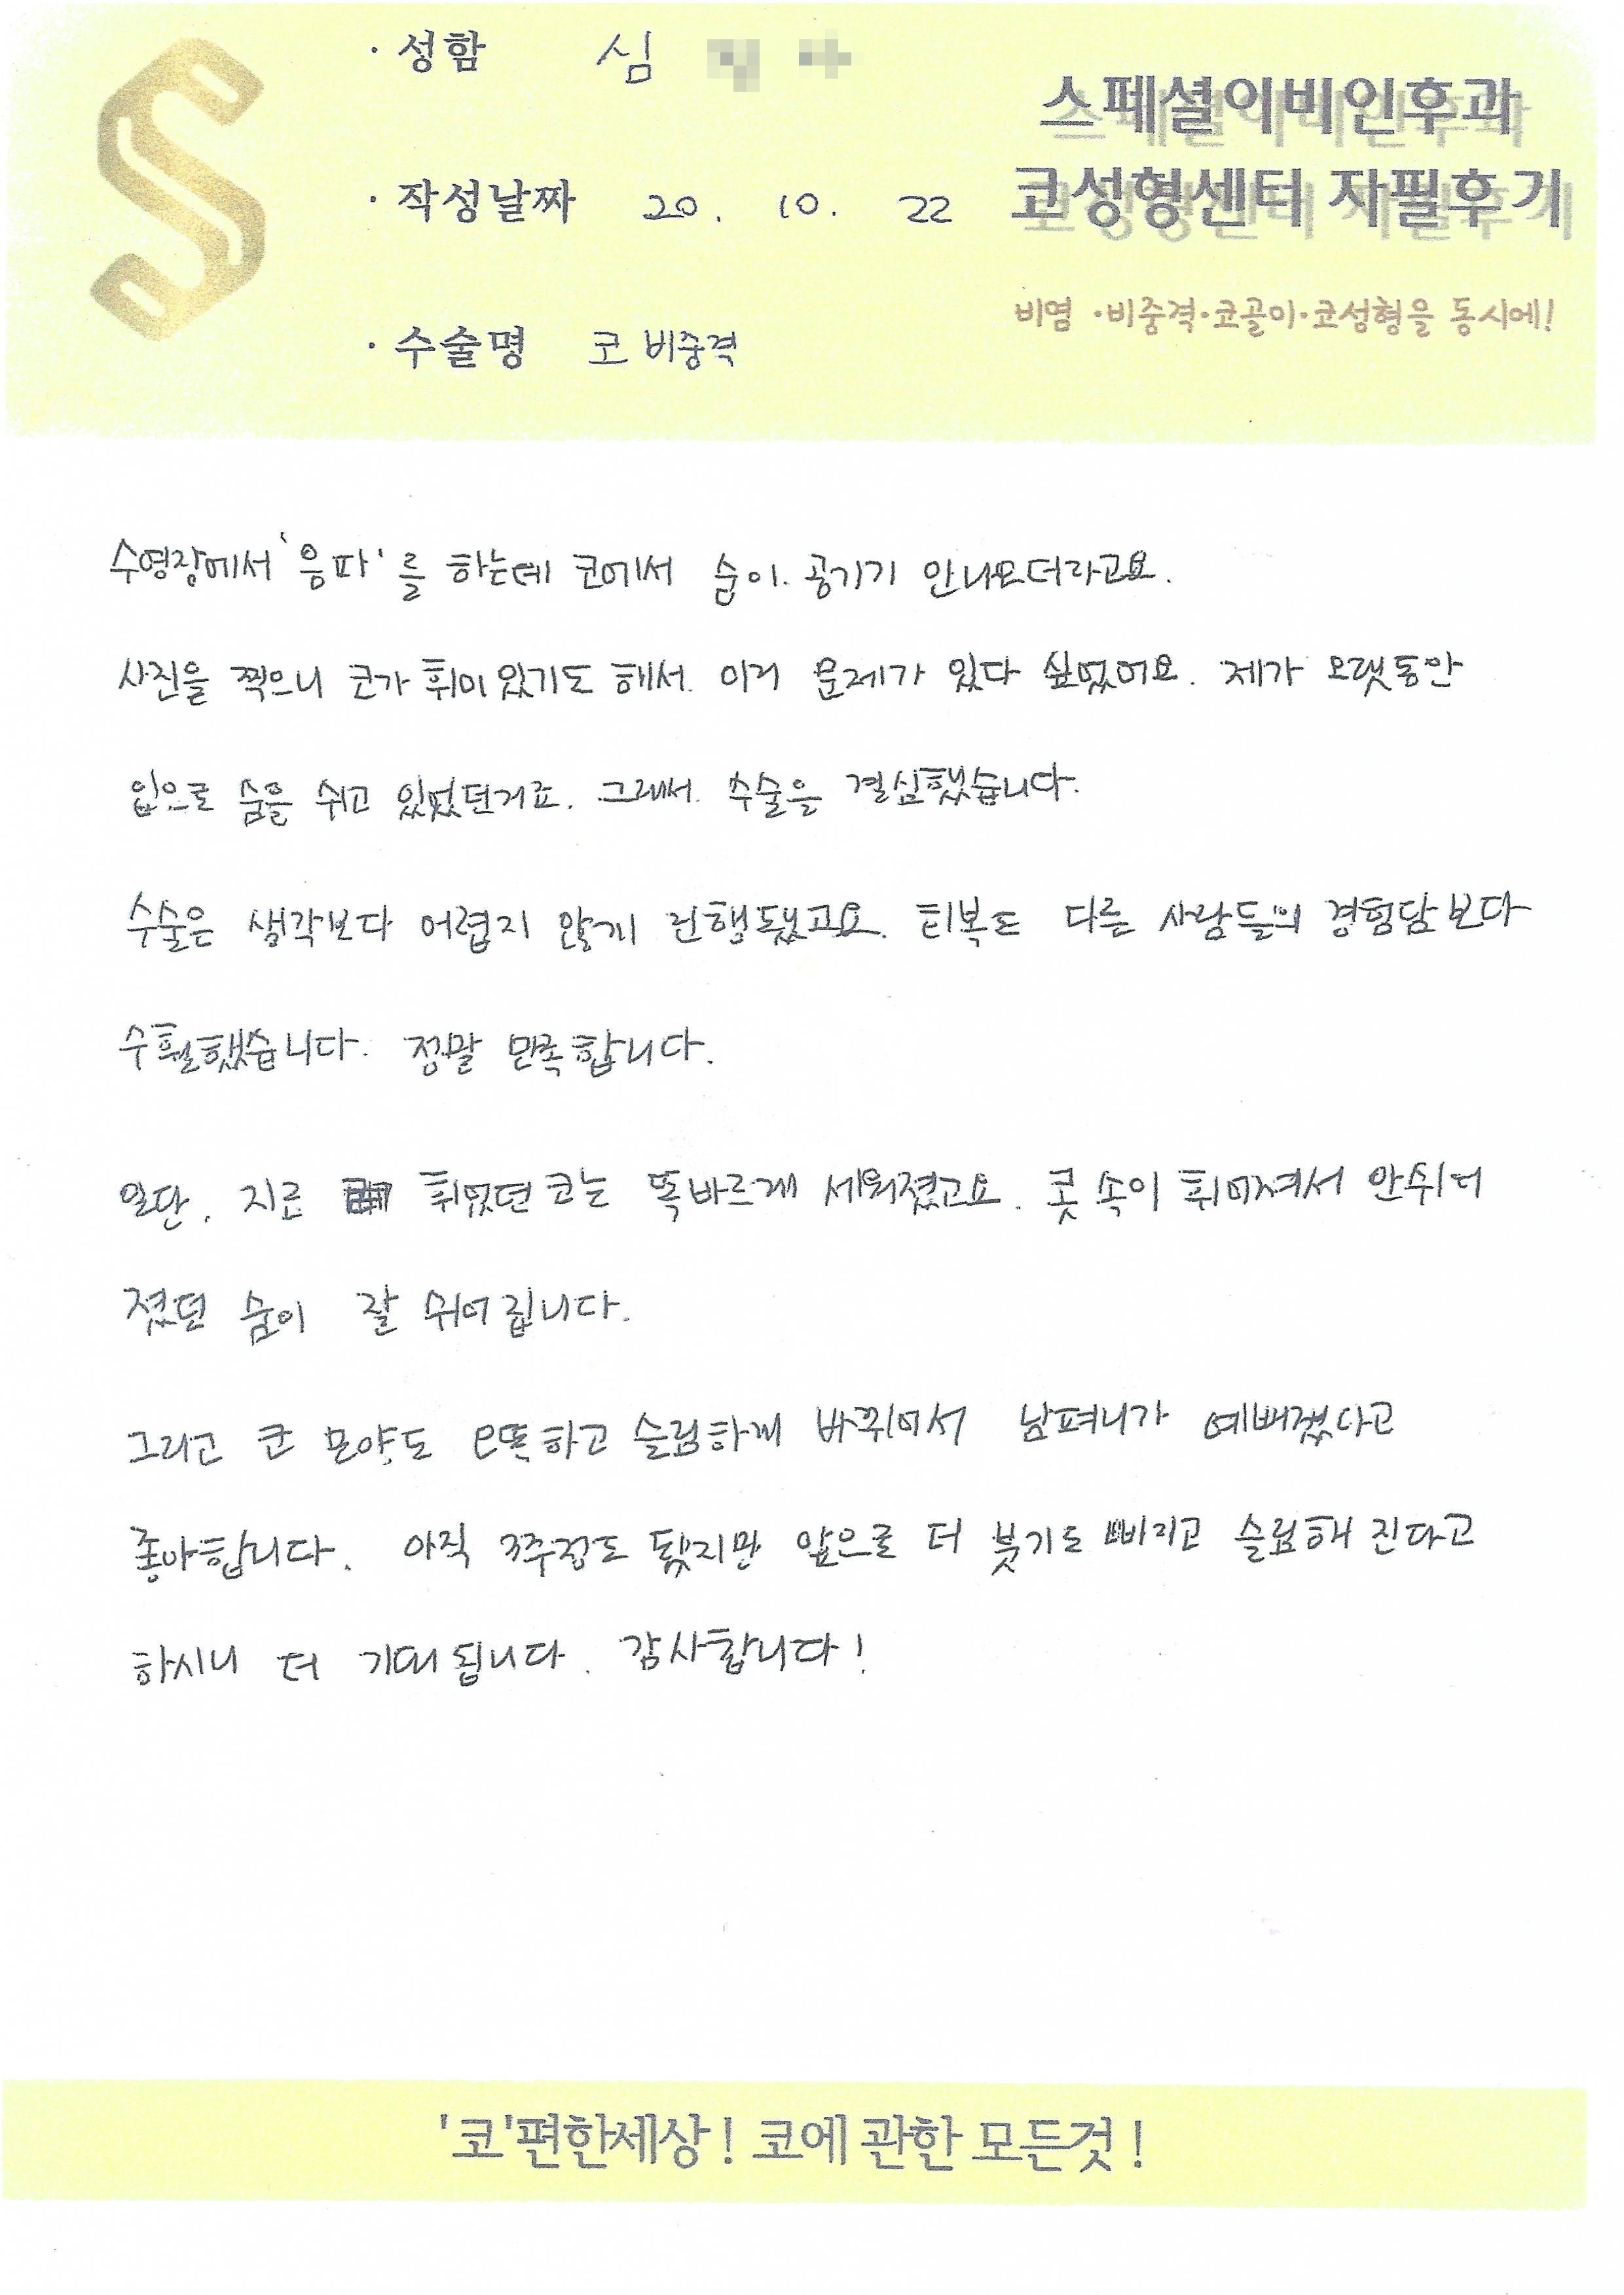 · 성함 심
스페셜이비인후과
코성형센터 자필후기
· 작성날짜 20. 10. 22
비염·비중격·코골이·코성형을 동시에!
· 수술명 코 비중격
수영장에서 '음파'를 하는데 코에서 숨이. 공기기 안나오더라고요.
사진을 찍으니 코가 휘어있기도 해서. 이거 문제가 있다 싶었어요. 제가 오랫동안
입으로 숨을 쉬고 있었던거죠. 그래서. 수술을 결심했습니다.
수술은 생각보다 어렵지 않게 진행됐고요. 회복도 다른 사람들의 경험담보다
수훨했습니다. 정말 만족합니다.
일단, 지금 휘었던 코는 똑바르게 세워졌고요. 콧 속이 휘어져서 안쉬어
졌던 숨이 잘 쉬어집니다.
그리고 코 모양도 오똑하고 슬림하게 바뀌어서 남편이가 예뻐졌다고
좋아합니다. 아직 3주정도 됐지만 앞으로 더 붓기도 빠지고 슬림해 진다고
하시니 더 기대됩니다. 감사합니다!
'코'편한세상! 코에 관한 모든것!